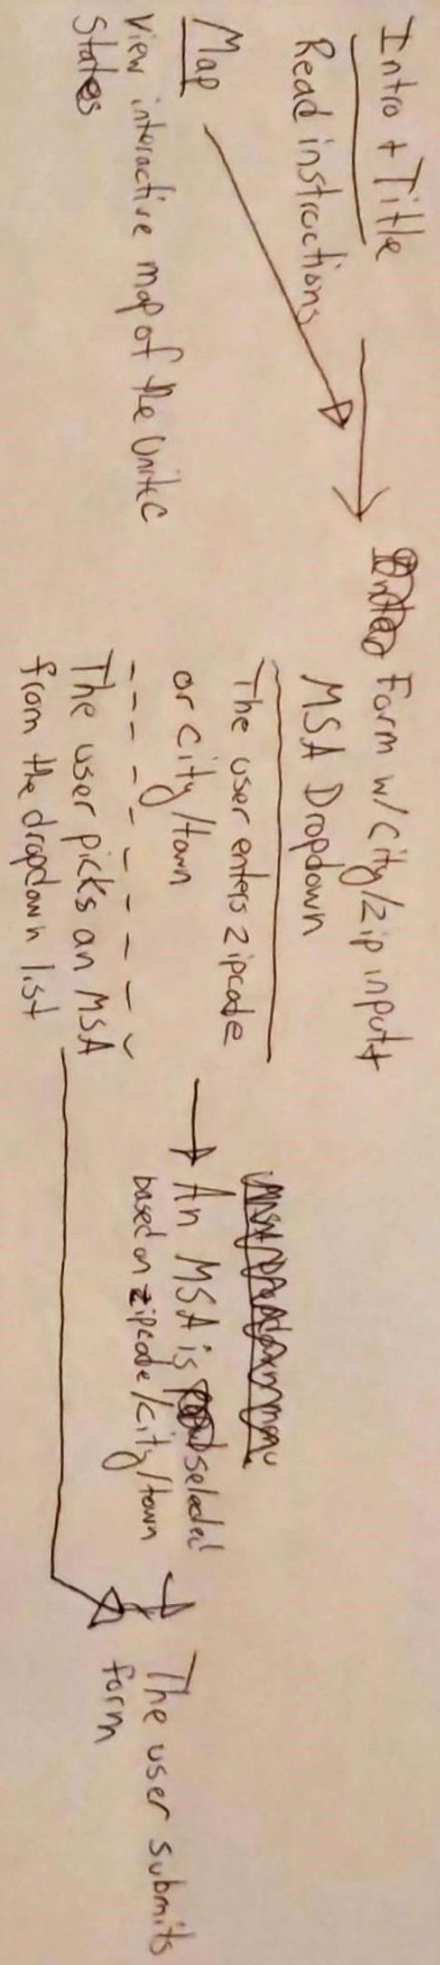 Intro + Title
Read instructions
Map
View interactive map of the Unitec
States
Form w/ city/zip input +
MSA Dropdown
The user enters zipcode
or city/town
The user picks an MSA
from the dropdown list
An MSA is selected
based on zipcode/city/town
The user submits
form